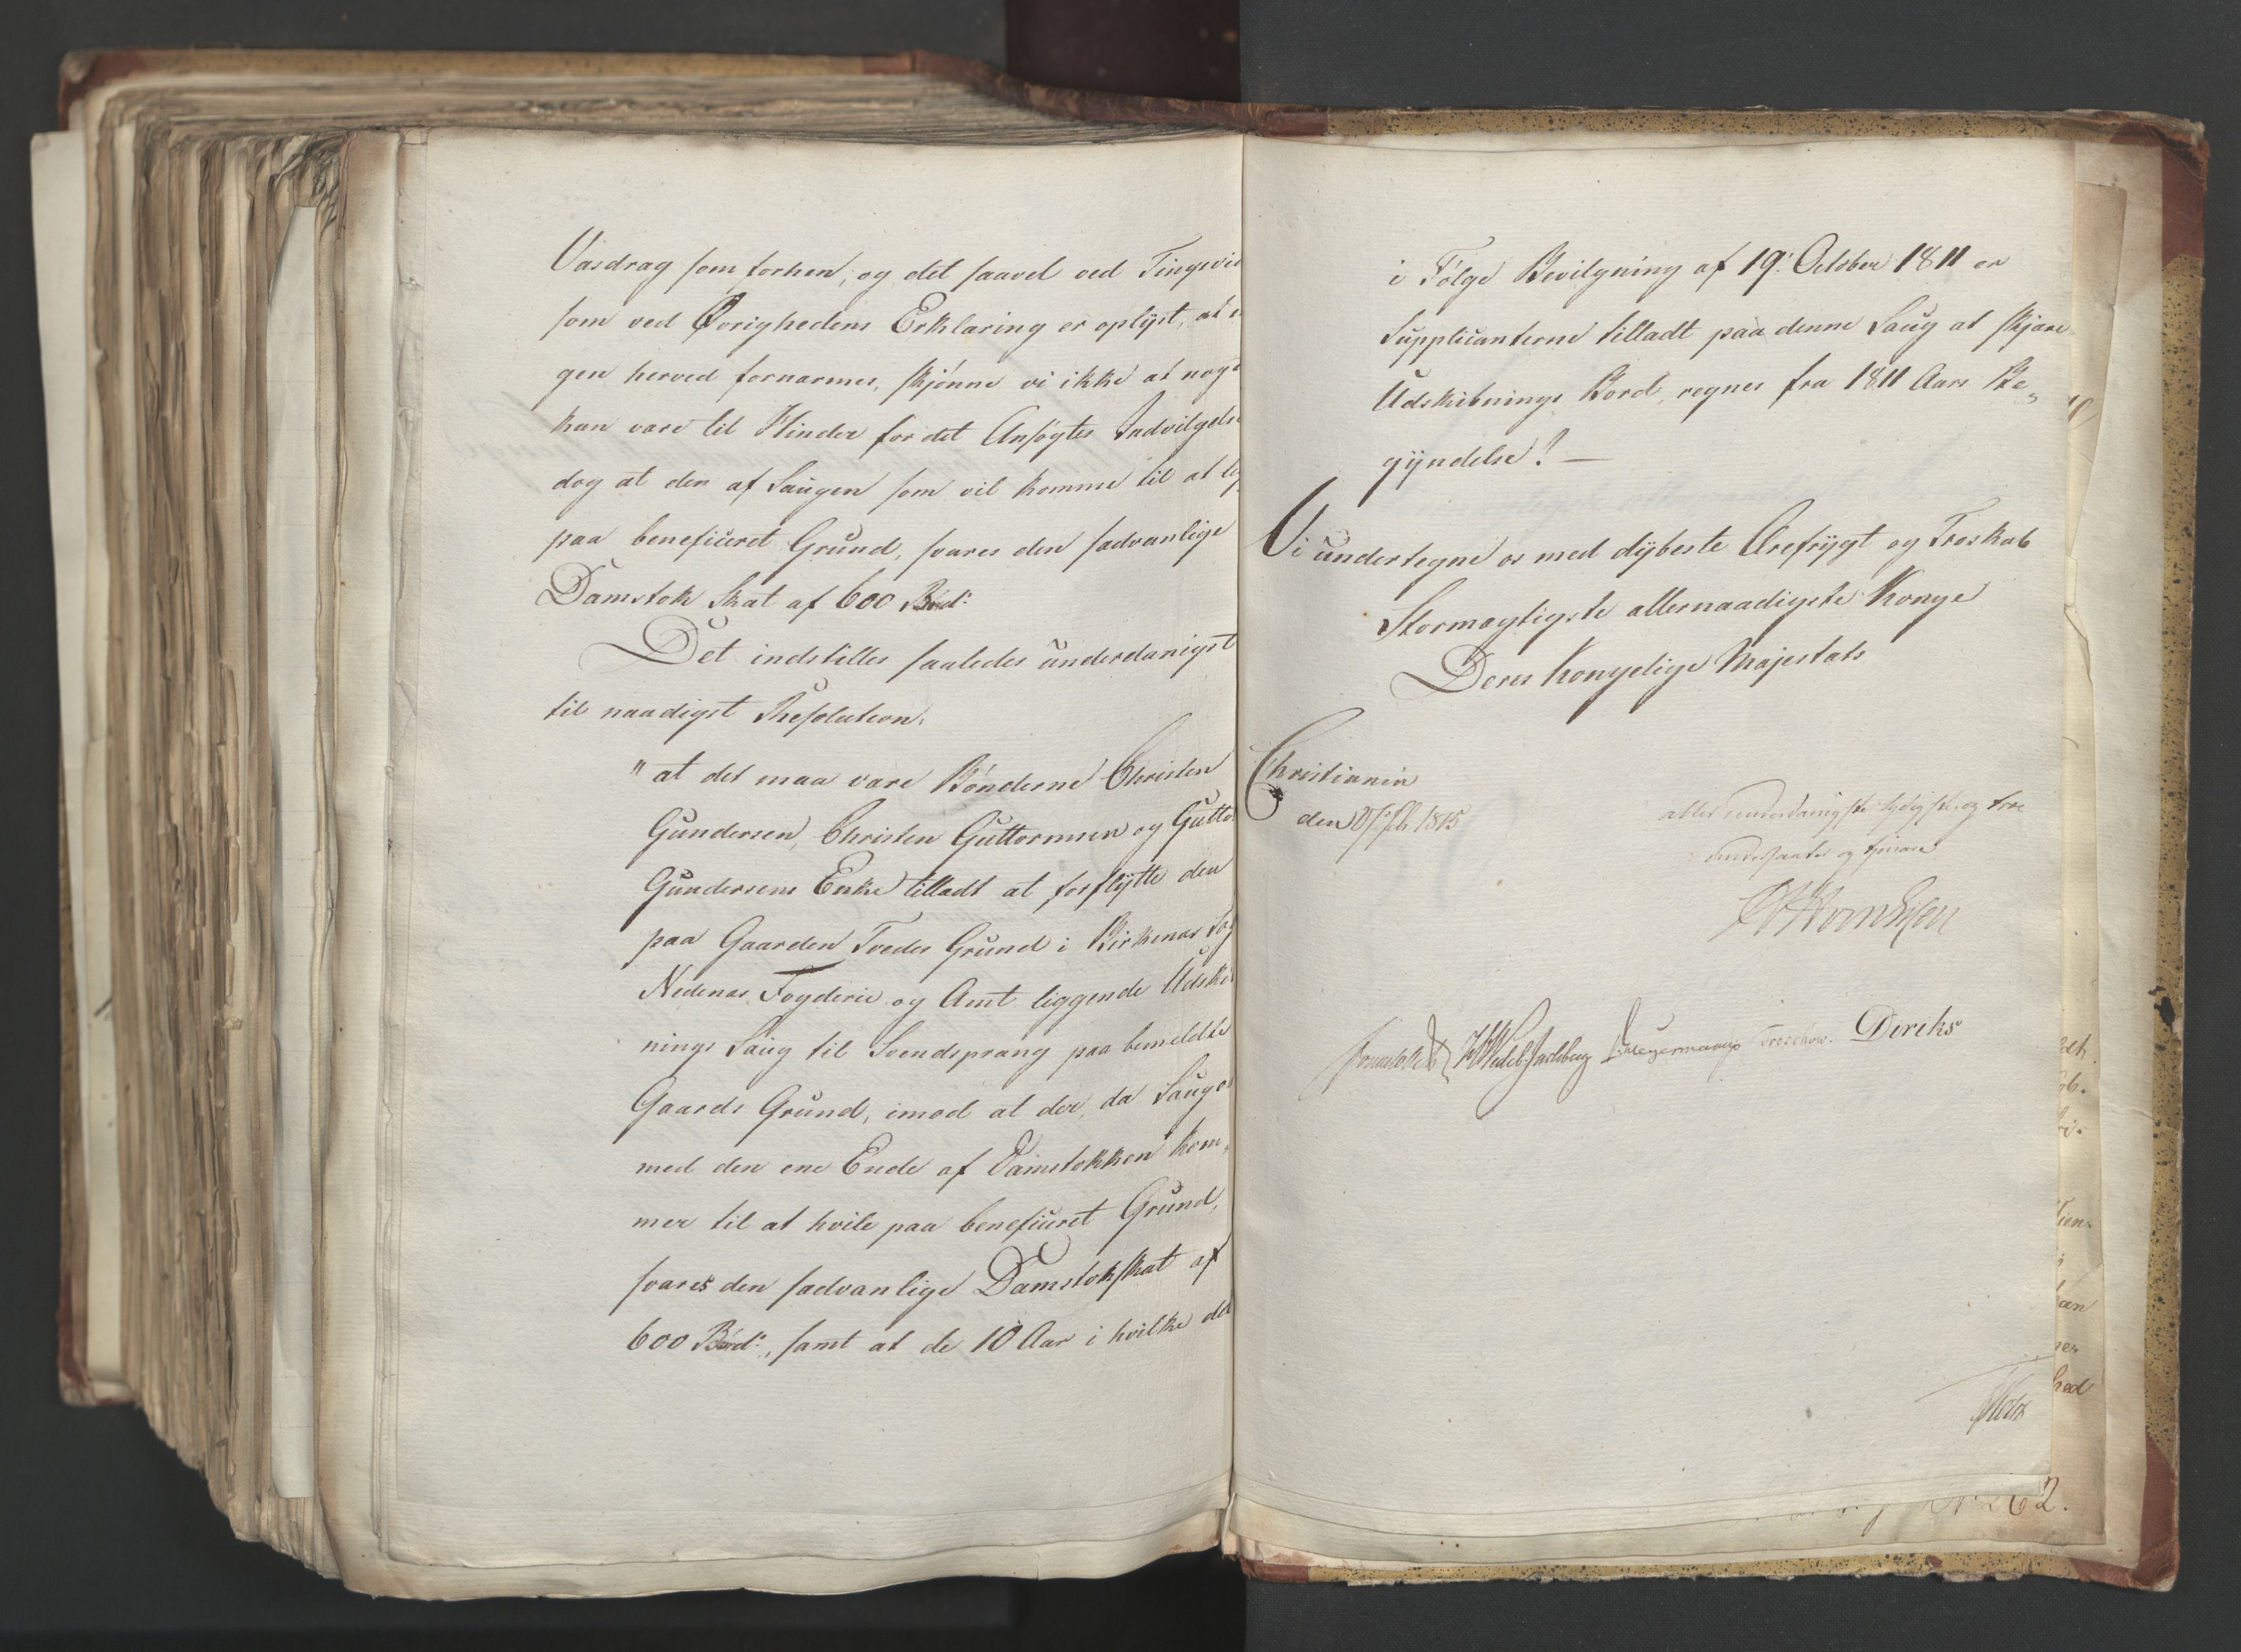 Vasdrag som forhen, og det saavel ved Tingsvid
som ved Øvrighedens Erklæring er oplyst, at i
gen herved fornærmes, skjønne vi ikke at noge
kan være til Hinder for det Ansøgtes Indvilgelse
dog at der af Saugen som vil komme til at lig
paa beneficeret Grund, svares den sædvanlige
Damstok Skat af 600 Bord:
Det indstilles saaledes underdanigst
til naadigst Resolution:
" at det maa være Bønderne Christen
Gundersen, Christen Guttormsen og Gutto
Gundersens Enke tilladt at forflytte den
paa Gaarden Tvedes Grund i Birkenæs Sog
Nedenæs Fogderie og Amt liggende Udskib
nings Saug til Svendsprang paa bemeldte
Gaards Grund, imod at der, da Sauge
med den ene Ende af Damstokken kom„
mer til at hvile paa beneficeret Grund,
svares den sædvanlige Damstokskat af
600 Bord:, samt at de 10 Aar i hvilke det
i Følge Bevilgning af 19: October 1811 er
Supplicanterne tilladt paa denne Saug at skjære
Udskibnings Bord, regnes fra 1811 Aars Be„
gyndelse! —
Vi undertegne os med dybeste Ærefrygt og Troskab
Stormægtigste allernaadigste Konge
Deres Kongelige Majestæts
Christiania
den 1815
aller underdanigste pligtskyldigste og troe
undersaatter og tjenere
Sommerhielm HWedel Jarlsberg Treschow. Diriks
Motz
262.